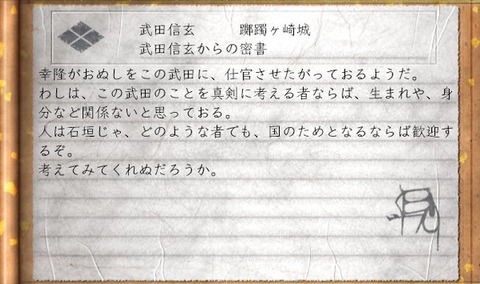 武田信玄　　躑躅ヶ崎城
武田信玄からの密書
幸隆がおぬしをこの武田に、仕官させたがっておるようだ。
わしは、この武田のことを真剣に考える者ならば、生まれや、身
分など関係ないと思っておる。
人は石垣じゃ、どのような者でも、国のためとなるならば歓迎す
るぞ。
考えてみてくれぬだろうか。